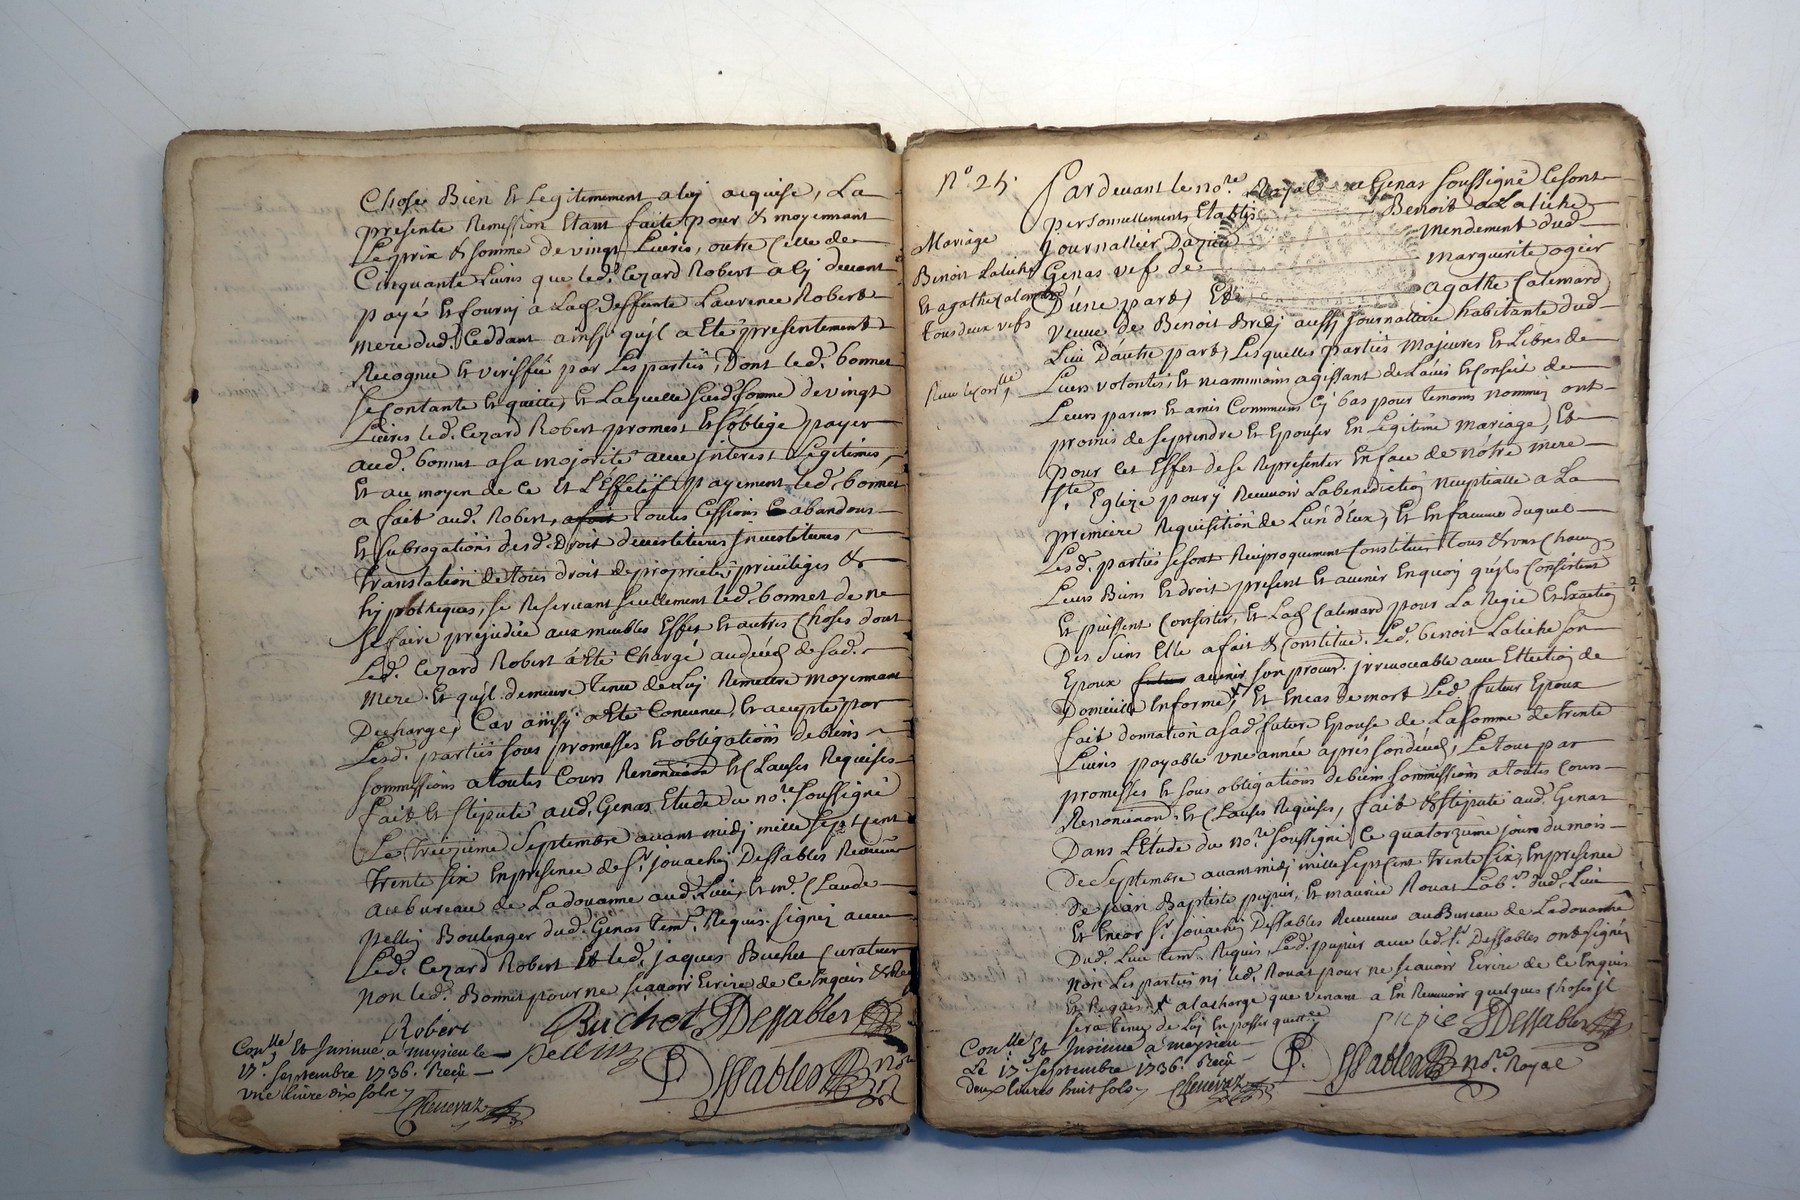 Chose Bien Et Legitimement a luy acquise, La
presente Remission Etant faite pour & moyennant
Le prix & somme de vingt Livres, outre Celle de
Cinquante Livres que led. Cezard Robert a cy devant
payé Et fourny a Lad. deffunte Laurence Robert
mere dud. Ceddant ainsy qu'il a Eté presentement
Recognue Et veriffié par Les partiës, Dont led. bonnet
Se contante Et quitte, Et Laquelle Susd. somme de vingt
Livres led. Cezard Robert promest Et s'oblige payer
aud. bonnet a sa majorité avec interest Legitimes,
Et au moyen de Ce Et L'Effetif payement led. bonnet
a fait aud. Robert, toutes Cessions abandons
Et subrogations desd. Droit devestitures investitures,
translation de tous droit de proprieté, privileges &
hypotheques, se Reservant seullement led. bonnet de ne
Se faire prejudice aux meubles Effet Et autres Choses dont
Led. Cezard Robert á Eté Chargé au decéd de sad.
mere. Et qu'il demeure tenu de Luy Remettre moyennant
Decharge, Car ainsy a Eté Convenu, Et accepté par
Lesd. partiës sous promesses Et obligations de biens
sommissions a toutes Cours Renonciäon Et Clauses Requises
fait Et stipulé aud. Genas Etude du no.re soussigné
Le treizieme Septembre avant midy mille sept Cent
trente six En presence de Sr. jouachin Dessables Receveur
au bureau de La doüanne aud. Lieu, Et me. Claude
pellin Boulenger dud. Genas tem. Requis. signéz avec
Led. Cezard Robert Et led. jaques Buchet Curateur
non led. Bonnet pour ne sçavoir Ecrire de Ce Enquis & Req
Robert Buchet Dessables
pellin
Con.lle Et Insinué a meysieu le
17e. septembre 1736. Reçû
une livre dix sols
Chenevaz
P. Dessables no.re
N°. 25.
Mariäge
Benoit Latiche
Et agathe Calemard
tous deux vefs
Pardevant le no.re Royal a Genas soussigné Se sont
personnellements Etablis Benoit Latiche
Journallier Dazieu mendement dud.
Genas vef de marguerite ogier
D'une part, Et agathe Calemard
veuve de Benoit Bredy aussy journallaire habitante dud.
Lieu D'autre part, Lesquelles parties majeures Et Libres de
Leurs volontés, Et neanmoins agissant de L'avis & Conseit de
Leurs parens Et amis Communs Cy bas pour temoins nommés ont
promis de se prendre Et Epouser En Legitime mariage, Et
pour Cet Effet de se Representer En face de nôtre mere
Ste. Eglize pour y Recevoir La benediction neuptialle a La
premiere Requisition de L'un d'eux, Et En faveur duquel
Lesd. partiës se sont Reciproquement Constituer tous & uns Chacuns
Leurs Biens Et droit present Et avenir En quoy qu'ils Consistent
Et puissent Consister, Et Lad. Calemard pour La Regie Et Exaction
Des Siens Elle a fait & Constitué. Led. benoit Latiche son
Epoux avenir son procur. irrevocable avec Ellection de
Domicille En forme, Et En cas de mort Led. futur Epoux
fait donnation a sad. future Epouse de La somme de trente
Livres payable une année aprés son decéd, Le tout par
promesses Et sous obligations de biens sommissions a toutes Cours
Renonciäon. Et Clauses Requises, fait & stipulé aud. Genas
Dans L'Etude du no.re soussigné Ce quatorzieme jour du mois
De septembre avant midy mille sept Cent trente six, En presence
de jean Baptiste pupié, Et maurice Rouat Lab.r dud. Lieu
Et Encor Sr. jouachin Dessables Receveur au Bureau de La doüanne
Dud. Lieu tem. Requis, Led. pupier avec led. Sr. Dessables ont signéz
non Les parties ny led. Rouat pour ne sçavoir Ecrire de Ce Enquis
Et Requis a la charge que venant a En Recevoir quelques Choses il
sera tenu de Luy En passer quittce
pupié Dessables
Con.lle Et Insinué a meysieu
Le 17e. septembre 1736. Reçû
Deux livres huit sols
Chenevaz
P. Dessables no.re Royal